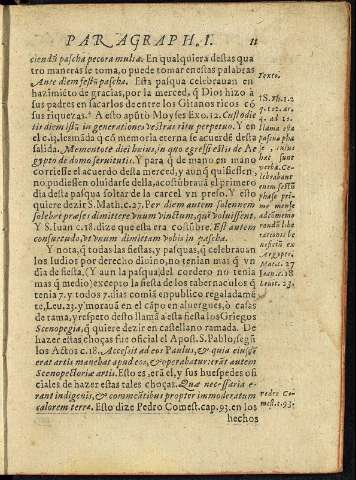 PARAGRAPH. I. 11
ciendū pascha pecora multæ. En qualquiera destas qua
tro maneras se toma, o puede tomar en estas palabras
Ante diem festū pascha. Esta pasqua celebrauan en
hazimiēto de gracias, por la merced, q̄ Dios hizo à
sus padres en sacarlos de entre los Gitanos ricos cō
sus riquezas. A esto apūtò Moyses Exo. 12. Custodie
tis diem istū in generationes vestras ritu perpetuo. Y en
el c. 13. les māda q̄ cō memoria eterna se acuerdē desta
salida. Mementote diei huius, in quo egressi estis de Ae
gypto de domo seruitutis. Y para q̄ de mano en mano
corriesse el acuerdo desta merced, y aunq̄ quisiessen
no pudiessen oluidarse della, acostūbrauā el primero
dia desta pasqua soltar de la carcel vn preso. Y esto
quiere dezir S. Math. c. 27. Per diem autem solennem
solebat præses dimittere vnum vinctum, quē voluissent.
Y S. Iuan c. 18. dize que esta era costūbre. Est autem
consuetudo, vt vnum dimittam vobis in pascha.
Y nota, q̄ todas las fiestas, y pasquas, q̄ celebrauan
los Iudios por derecho diuino, no tenian mas q̄ vn
dia de fiesta. (Y aun la pasqua del cordero no tenia
mas q̄ medio) excepto la fiesta de los tabernaculos q̄
tenia 7. y todos 7. dias comiā en publico regaladamē
te, Leu. 23. y morauā en el cāpo en aluergues, ò casas
de rama, y respeto desto llamā a esta fiesta los Griegos
Scenopegia, q̄ quiere dezir en castellano ramada. De
hazer estas choças fue oficial el Apost. S. Pablo, segū
los Actos c. 18. Accessit ad eos Paulus, & quia eiusdē
erat artis manebat apud eos, & operabatur: erāt autem
Scenopectoriæ artis. Esto es, era el, y sus huespedes ofi
ciales de hazer estas tales choças. Quæ necessaria e-
rant indigenis, & commeātibus propter immoderatum
calorem terræ. Esto dize Pedro Comest. cap. 93. en los
hechos
Texto.
verba.
Celebrabant
Ægypto.
Matt. c. 27
Ioan. c. 18
Leuit. 23.
Pedro Co-
mest. c. 93.